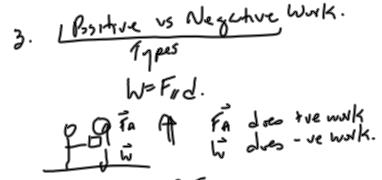 3. Positive vs Negative Work.
Types
W = F∥ d.
F⃗A F⃗A does +ve work
W⃗ W⃗ does -ve work.